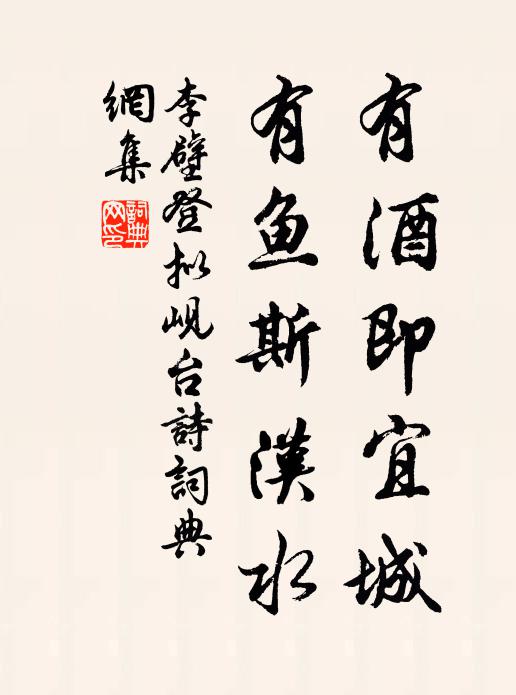 有酒即宜城
有鱼斯漢水
李壁登拟峴台詩詞典
網集
詞典
网印